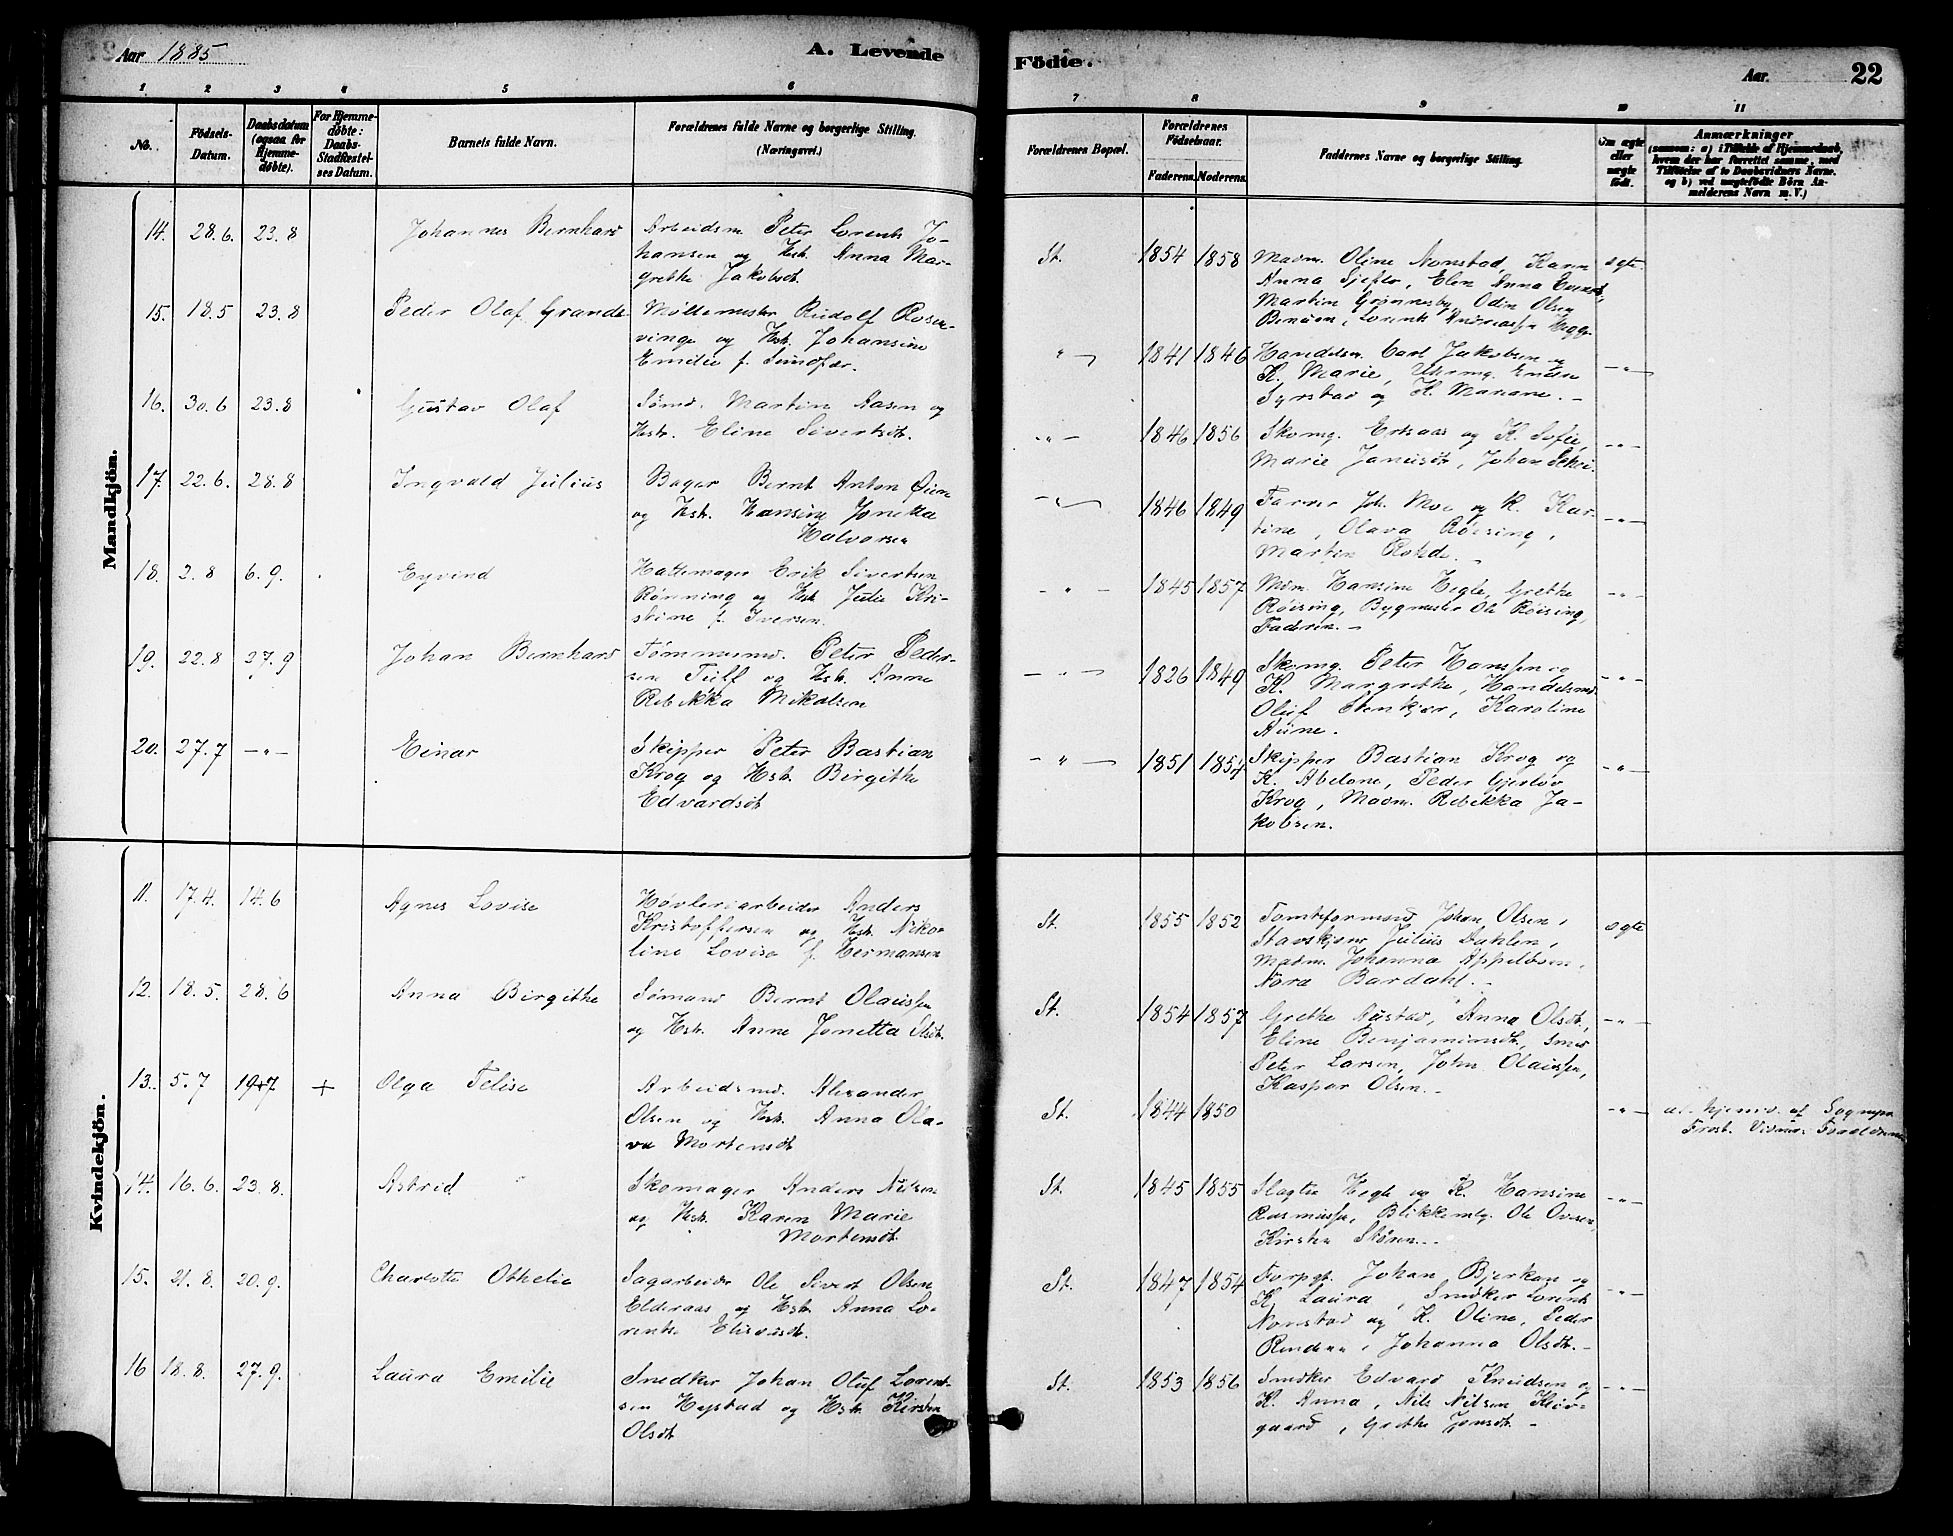 Aar 1885
A. Levende
Födte.
Aar.
22
1 2 3 4 5 6 7 8 9 10 11
No.
Födsels-
Datum.
Daabsdatum
(ogsaa for
Hjemme-
døbte).
For Hjemme-
døbte:
Daabs-
Stadfæstel-
ses Datum.
Barnets fulde Navn.
Forældrenes fulde Navne og borgerlige Stilling.
(Næringsvei.)
Forældrenes Bopæl.
Forældrenes
Födselsaar.
Faderens. Moderens.
Faddernes Navne og borgerlige Stilling.
Om ægte
eller
uægte
født.
Anmærkninger
(saasom: a) i Tilfælde af Hjemmedaab,
hvem der har forrettet samme, med
Tilföielse af to Daabsvidners Navne.
og b) ved uægtefödte Börn An-
melderens Navn m. V.)
Mandkjön.
14. 28.6. 23.8 Johannes Bernhard
Arbeidsm. Peter Lorents Jo-
hansen og Hstr. Anna Mar-
grethe Jakobsdt.
St. 1854 1858
Madm. Oline Nonstad Karen
Anna Sjefer, Elen Anna
Martin Grønnesby, Odin Olsen
Lorents Andreassen
ægte.
15. 18.5 23.8 Peder Olaf Grande
Møllemester Rudolf Rosen-
vinge og Hstr. Johansine
Emilie f. Sundfær.
" 1841 1846
Handelsm. Carl Jakobsen og
K. Marie, Uhrmg.
Syrstad og K. Mariane. -
-"-
16. 30.6 23.8 Gustav Olaf
Sømd. Martin Aasen og
Hstr. Eline Sivertsdt.
-"- 1846 1856
Skomg. og K. Sofie,
Marie Janusdt, Johan
-"-
17. 22.6. 28.8 Ingvald Julius
Bager Bernt Anton Øien
og Hstr. Hansine Jonetta
Halvorsen
-"- 1846 1849
Farver Joh. Moe og K. Kar-
tine, Olava Røising,
Martin Rohde. -
-"-
18. 2.8 6.9. Eyvind
Hattemager Erik Sivertsen
Rønning og Hstr. Julie Kri-
stine f. Iversen.
-"- 1845 1857
Mdm. Hansine Hegle, Grethe
Røising, Bygmester Ole Røising,
Faderen. -
-"-
19. 22.8 27.9 Johan Bernhard
Tømmermd. Peter Peder-
sen Tuff og Hstr. Anne
Rebekka Mikalsen
-"- 1826 1849
Skomg. Peter Hanssen og
K. Margrethe, Handelsmd.
Oluf Stenkjær, Karoline
Aune.
-"-
20. 27.7 -"- Einar
Skipper Peter Bastian
Krog og Hstr. Birgithe
Edvardsdt
-"- 1851 1857
Skipper Bastian Krog og
K. Abelone, Peder Gjerløv
Krog, Madm. Rebekka Ja-
kobsen.
-"-
Kvindekjön.
11. 17.4. 14.6 Agnes Lovise
Høvleriarbeider Anders
Kristoffersen og Hstr. Niko-
line Lovise f. Hermansen
St. 1855 1852
Tomteformand Johan Olsen,
Julius Dahlen,
Madm. Johanna Appelosen,
Nora Bardahl. -
ægte
12. 18.5. 28.6 Anna Birgithe
Sømand Bernt Olaussen
og Hstr. Anne Jonetta Olsdt.
St. 1854 1857
Grethe Austad, Anna Olsdt,
Eline Benjaminsdt, Smed
Peter Larsen, John Olaussen,
Kaspar Olsen. -
-"-
13. 5.7 19+7 + Olga Felise
Arbeidsmd. Alexander
Olsen og Hstr. Anna Ola-
va Mortensdt
St. 1844 1850
-"-
hjemd. af Sognepr.
Frost. Vidner: Forældrene
14. 16.6. 23.8. Astrid
Skomager Anders Nilsen
og Hstr. Karen Marie
Mortensdt.
St. 1845 1855
Slagter Hegle og K. Hansine
Rasmussen, Blikkenslg. Ole Ovesen,
Kirsten Støren. -
-"-
15. 21.8. 20.9. Charlotte Othelie
Sagarbeider Ole Sivert Olsen
Elderaas og Hstr. Anna Lo-
rentse Elisæusdt.
St. 1847 1854
Forpgt. Johan Bjerkan og
K. Laura, Snedker Lorents
Nonstad og K. Oline, Peder
Johanna Olsdt. -
-"-
16 18.8. 27.9. Laura Emilie
Snedker Johan Oluf Lorent-
sen Høystad og Hstr. Kirsten
Olsdt
St. 1853 1856
Snedker Edvard Knudsen og
K. Anna, Nils Nilsen Kløv-
gaard, Grethe Jonsdt. -
-"-